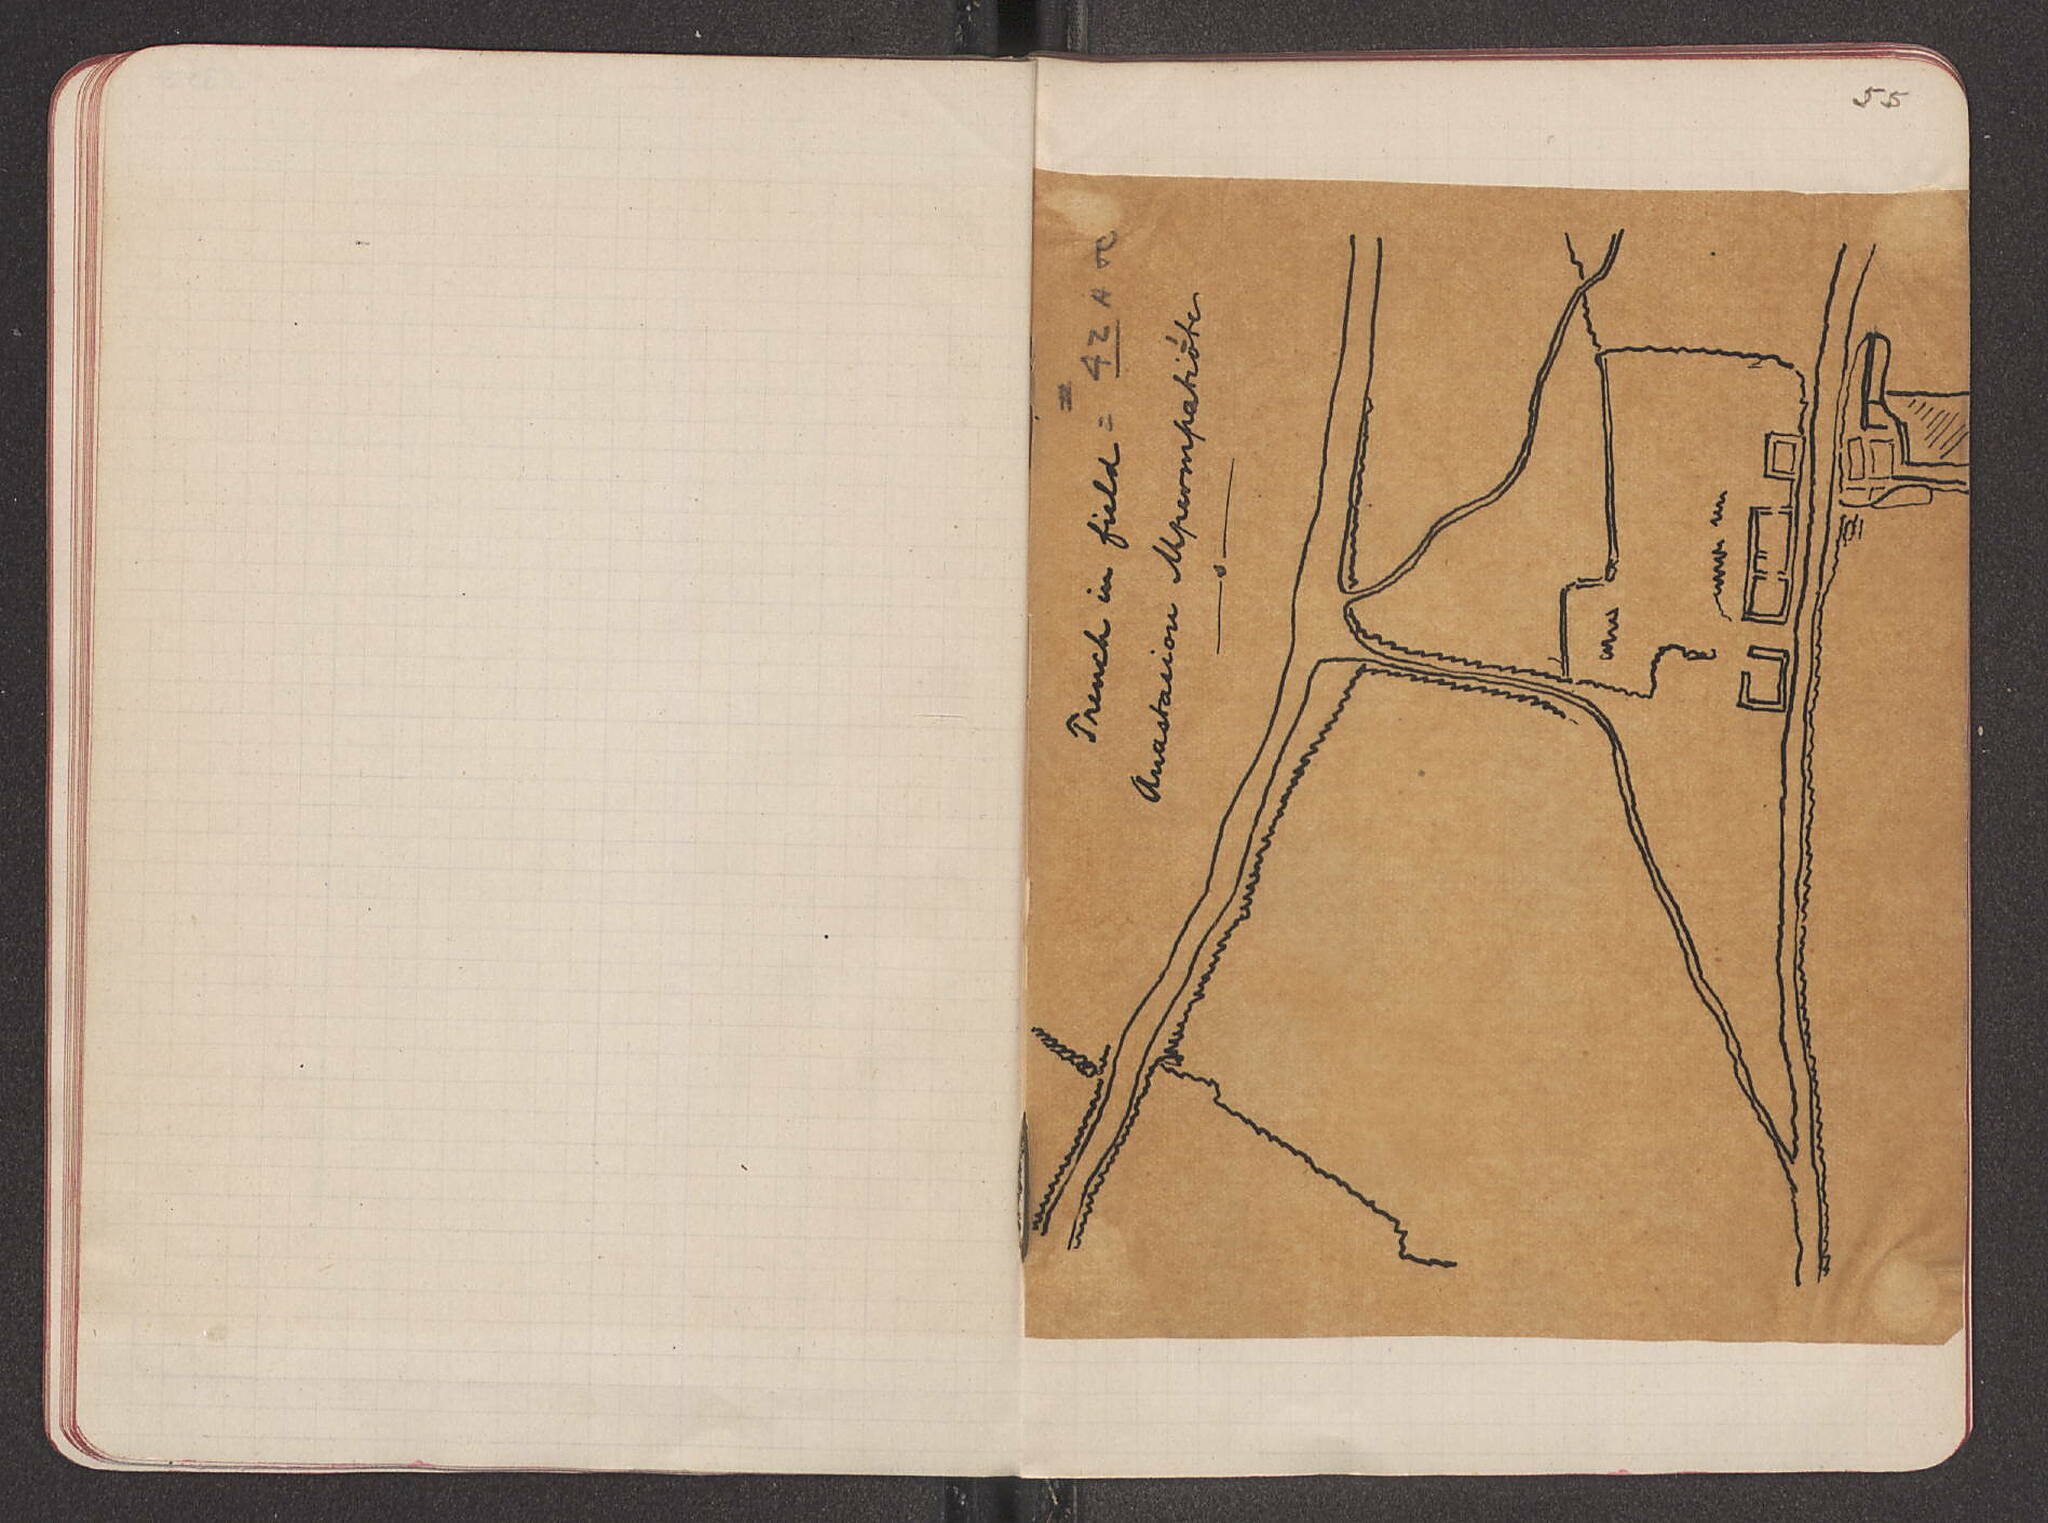 55
Trench in field = 42
Anastasiou Mpeompatióte